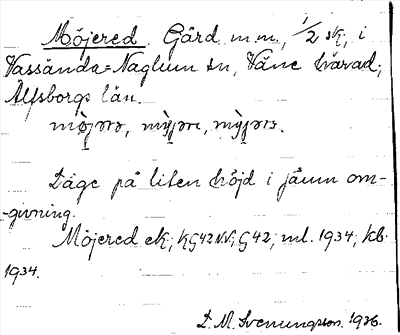 Möjered Gård m.m., 1/2 sk, i
Vassända=Naglum sn, Väne härad,
Älfsborgs län.
Läge på liten höjd i jämn om-
-givning.
Möjered ek; KG42NV; G42; ml. 1934; kb.
1934.
D. M. Svenungsson. 1936.